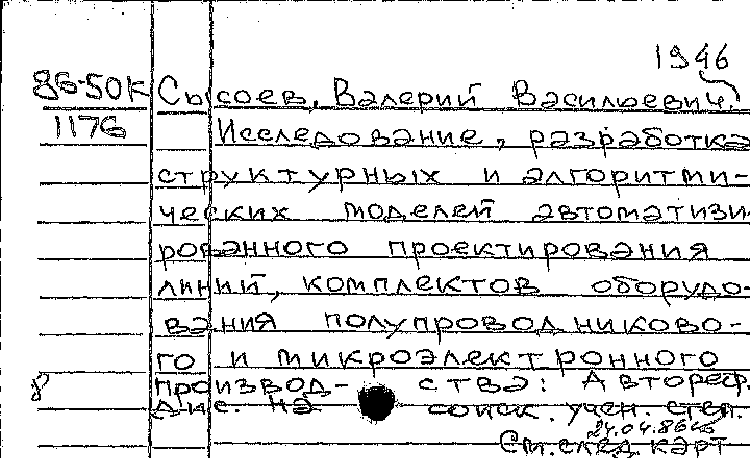 1946
86-50К Сысоев, Валерий Васильевич.
1176 Исследование, разработка
структурных и алгоритми-
ческих моделей автоматизи-
рованного проектирования
линий, комплектов оборудо-
вания полупроводниково-
го и микроэлектронного
производ- ства: Автореф.
дис. на соиск. учен. степ.
24.04.86
См. след. карт